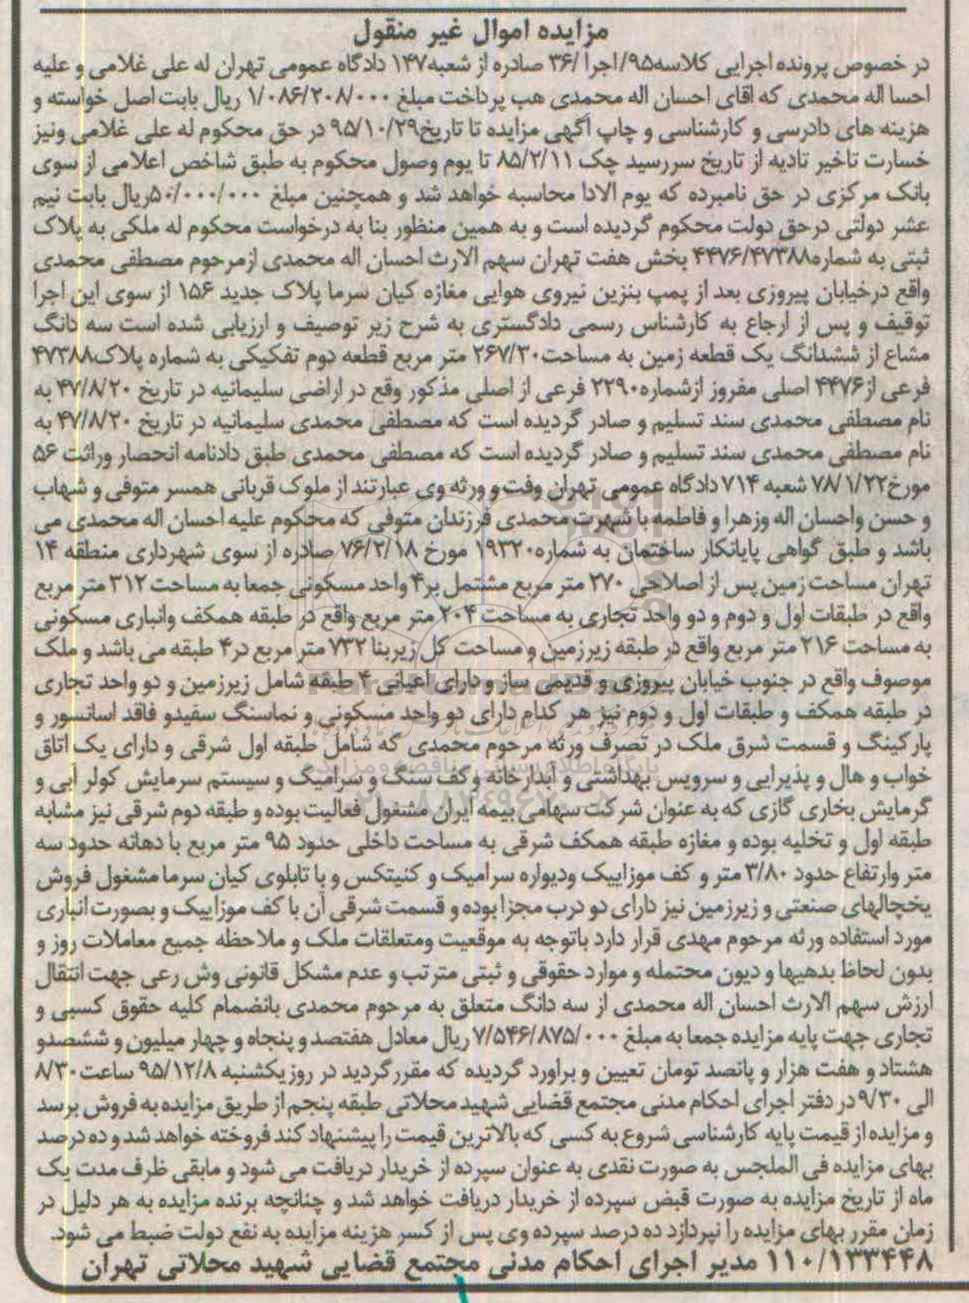 مزایده اموال غیر منقول
در خصوص پرونده اجرایی کلاسه۹۵/اجرا/۳۶ صادره از شعبه۱۴۷ دادگاه عمومی تهران له علی غلامی و علیه
احسا اله محمدی که اقای احسان اله محمدی هب پرداخت مبلغ ۱/۰۸۶/۲۰۸/۰۰۰ ریال بابت اصل خواسته و
هزینه های دادرسی و کارشناسی و چاپ آگهی مزایده تا تاریخ۹۵/۱۰/۲۹ در حق محکوم له علی غلامی ونیز
خسارت تاخیر تادیه از تاریخ سررسید چک ۸۵/۲/۱۱ تا یوم وصول محکوم به طبق شاخص اعلامی از سوی
بانک مرکزی در حق نامبرده که یوم الادا محاسبه خواهد شد و همچنین مبلغ ۵۰/۰۰۰/۰۰۰ریال بابت نیم
عشر دولتی درحق دولت محکوم گردیده است و به همین منظور بنا به درخواست محکوم له ملکی به پلاک
ثبتی به شماره۴۴۷۶/۴۷۳۸۸ بخش هفت تهران سهم الارث احسان اله محمدی ازمرحوم مصطفی محمدی
واقع درخیابان پیروزی بعد از پمپ بنزین نیروی هوایی مغازه کیان سرما پلاک جدید ۱۵۶ از سوی این اجرا
توقیف و پس از ارجاع به کارشناس رسمی دادگستری به شرح زیر توصیف و ارزیابی شده است سه دانگ
مشاع از ششدانگ یک قطعه زمین به مساحت۲۶۷/۳۰ متر مربع قطعه دوم تفکیکی به شماره پلاک۴۷۳۸۸
فرعی از۴۴۷۶ اصلی مفروز ازشماره۲۲۹۰ فرعی از اصلی مذکور وقع در اراضی سلیمانیه در تاریخ ۴۷/۸/۲۰ به
نام مصطفی محمدی سند تسلیم و صادر گردیده است که مصطفی محمدی سلیمانیه در تاریخ ۴۷/۸/۲۰ به
نام مصطفی محمدی سند تسلیم و صادر گردیده است که مصطفی محمدی طبق دادنامه انحصار وراثت ۵۶
مورخ۷۸/۱/۲۲ شعبه ۷۱۴ دادگاه عمومی تهران وفت و ورثه وی عبارتند از ملوک قربانی همسر متوفی و شهاب
و حسن واحسان اله وزهرا و فاطمه با شهرت محمدی فرزندان متوفی که محکوم علیه احسان اله محمدی می
باشد و طبق گواهی پایانکار ساختمان به شماره۱۹۳۲۰ مورخ ۷۶/۲/۱۸ صادره از سوی شهرداری منطقه ۱۴
تهران مساحت زمین پس از اصلاحی ۲۷۰ متر مربع مشتمل بر۴ واحد مسکونی جمعا به مساحت ۳۱۲ متر مربع
واقع در طبقات اول و دوم و دو واحد تجاری به مساحت ۲۰۴ متر مربع واقع در طبقه همکف وانباری مسکونی
به مساحت ۲۱۶ متر مربع واقع در طبقه زیرزمین و مساحت کل زیربنا ۷۳۲ متر مربع در۴ طبقه می باشد و ملک
موصوف واقع در جنوب خیابان پیروزی و قدیمی ساز و دارای اعیانی ۴ طبقه شامل زیرزمین و دو واحد تجاری
در طبقه همکف و طبقات اول و دوم نیز هر کدام دارای دو واحد مسکونی و نماسنگ سفیدو فاقد اسانسور و
پارکینگ و قسمت شرق ملک در تصرف ورثه مرحوم محمدی که شامل طبقه اول شرقی و دارای یک اتاق
خواب و هال و پذیرایی و سرویس بهداشتی و ابدارخانه و کف سنگ و سرامیگ و سیستم سرمایش کولر آبی و
گرمایش بخاری گازی که به عنوان شرکت سهامی بیمه ایران مشغول فعالیت بوده و طبقه دوم شرقی نیز مشابه
طبقه اول و تخلیه بوده و مغازه طبقه همکف شرقی به مساحت داخلی حدود ۹۵ متر مربع با دهانه حدود سه
متر وارتفاع حدود ۳/۸۰ متر و کف موزاییک ودیواره سرامیک و کنیتکس و با تابلوی کیان سرما مشغول فروش
یخچالهای صنعتی و زیرزمین نیز دارای دو درب مجزا بوده و قسمت شرقی آن با کف موزاییک و بصورت انباری
مورد استفاده ورثه مرحوم مهدی قرار دارد باتوجه به موقعیت ومتعلقات ملک و ملاحظه جمیع معاملات روز و
بدون لحاظ بدهیها و دیون محتمله و موارد حقوقی و ثبتی مترتب و عدم مشکل قانونی وش رعی جهت انتقال
ارزش سهم الارث احسان اله محمدی از سه دانگ متعلق به مرحوم محمدی بانضمام کلیه حقوق کسبی و
تجاری جهت پایه مزایده جمعا به مبلغ ۷/۵۴۶/۸۷۵/۰۰۰ ریال معادل هفتصد و پنجاه و چهار میلیون و ششصدو
هشتاد و هفت هزار و پانصد تومان تعیین و براورد گردیده که مقرر گردید در روز یکشنبه ۹۵/۱۲/۸ ساعت۸/۳۰
الی ۹/۳۰ در دفتر اجرای احکام مدنی مجتمع قضایی شهید محلاتی طبقه پنجم از طریق مزایده به فروش برسد
و مزایده از قیمت پایه کارشناسی شروع به کسی که بالاترین قیمت را پیشنهاد کند فروخته خواهد شد و ده درصد
بهای مزایده فی الملجس به صورت نقدی به عنوان سپرده از خریدار دریافت می شود و مابقی ظرف مدت یک
ماه از تاریخ مزایده به صورت قبض سپرده از خریدار دریافت خواهد شد و چنانچه برنده مزایده به هر دلیل در
زمان مقرر بهای مزایده را نپردازد ده درصد سپرده وی پس از کسر هزینه مزایده به نفع دولت ضبط می شود.
۱۱۰/۱۳۳۴۴۸ مدیر اجرای احکام مدنی مجتمع قضایی شهید محلاتی تهران